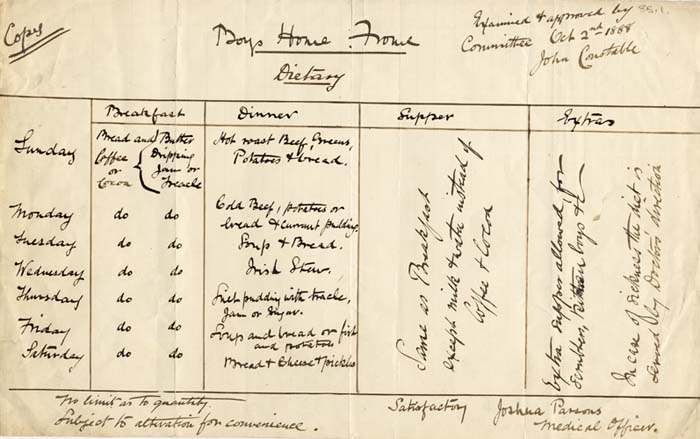 Copy
Boys Home Frome
Dietary
Examined & approved by
Committee Oct 2nd 1888
John Constable
551.
Breakfast Dinner Supper Extras
Sunday
Bread and Butter
Coffee or Cocoa
Dripping
Jam or
Treacle
Hot roast Beef, Greens,
Potatoes & bread.
Monday do do
Cold Beef, potatoes or
bread & currant pudding.
Tuesday do do Soup & Bread.
Wednesday do do Irish Stew.
Thursday do do
Suet pudding with treacle,
Jam or Sugar.
Friday do do
Soup and bread or fish
and potatoes
Saturday do do Bread & Cheese & pickles
Same as Breakfast
except milk & water instead of
Coffee & Cocoa
Extra supper allowed for
boys &c
In case of sickness the diet is
by Doctors direction
No limit as to quantity
Subject to alteration for convenience.
Satisfactory Joshua Parsons
Medical Officer.